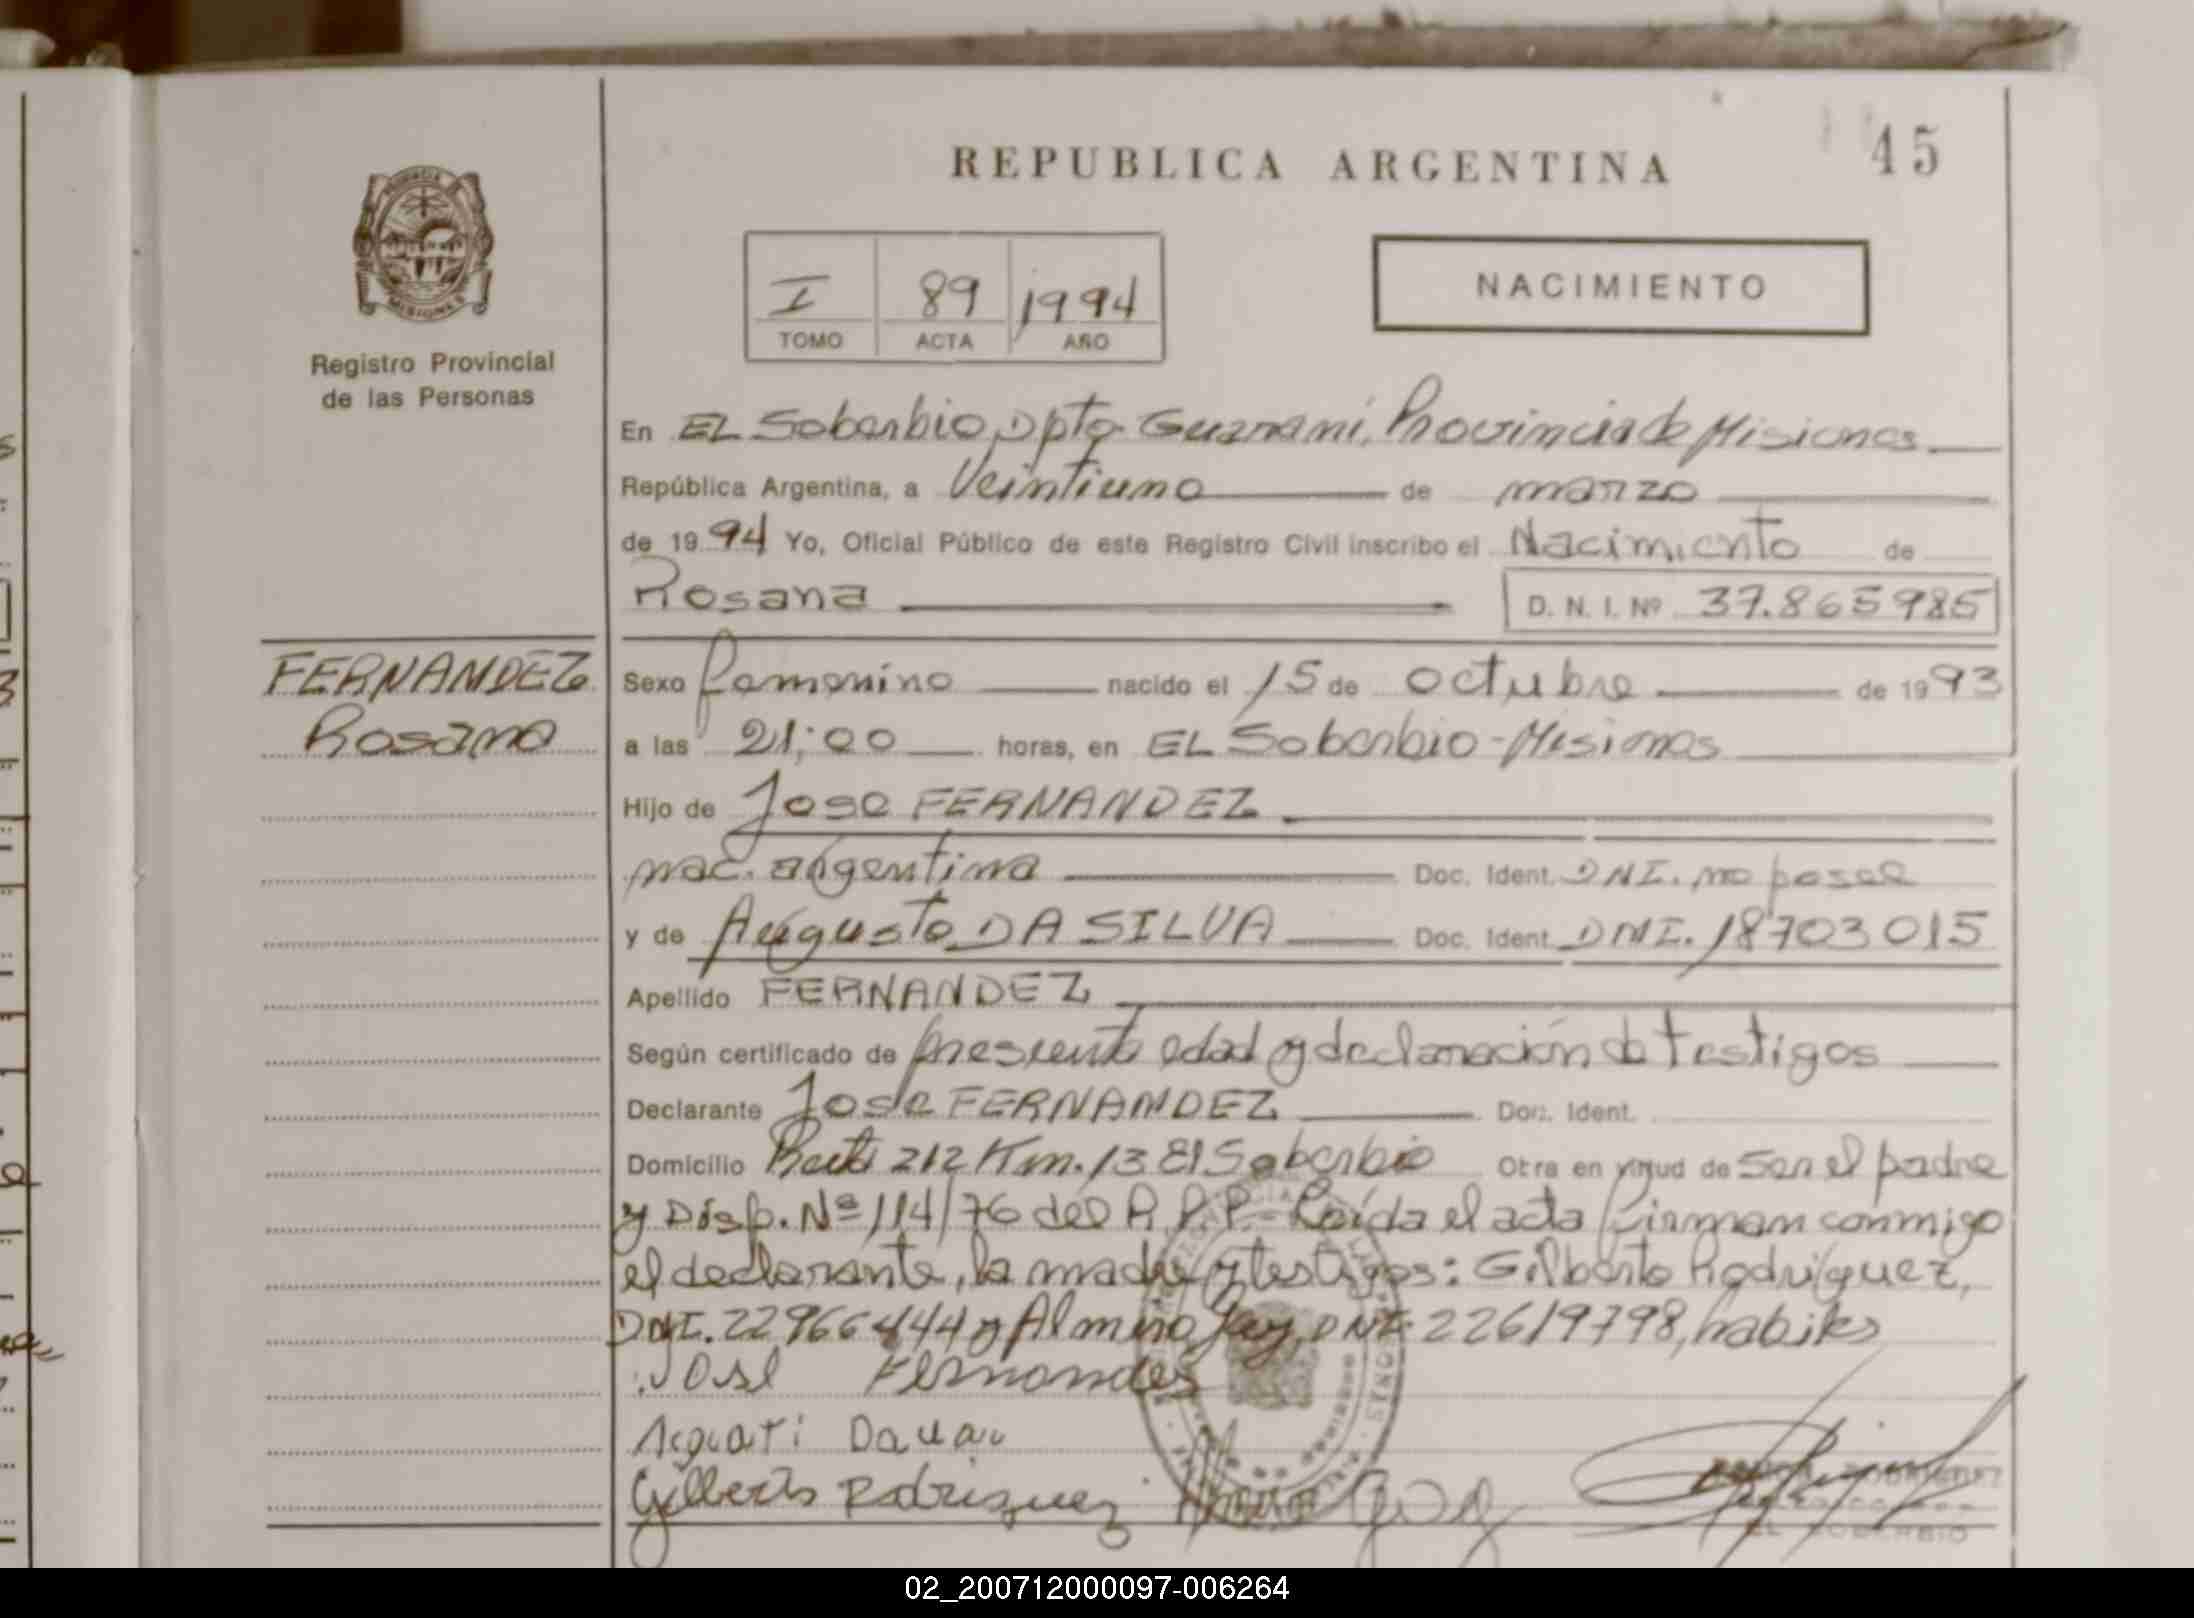 REPUBLICA ARGENTINA
45
I 89 1994
TOMO ACTA AÑO
NACIMIENTO
MISIONES
Registro Provincial
de las Personas
En EL Soberbio, Dpto Guarani, Provincia de Misiones
República Argentina, a Veintiuno de marzo
de 1994 Yo, Oficial Público de este Registro Civil inscribo el Nacimiento de
Rosana D. N. I. Nº 37.865985
FERNANDEZ
Rosana
Sexo femenino nacido el 15 de octubre de 1993
a las 21:00 horas, en EL Soberbio - Misiones
Hijo de Jose FERNANDEZ
nac. argentina Doc. Ident. DNI. no posee
y de Augusto DA SILVA Doc. Ident. DNI. 18703015
Apellido FERNANDEZ
Según certificado de presente edad y declaración de testigos
Declarante Jose FERNANDEZ Doc. Ident.
Domicilio Ruta 212 Km. 13 El Soberbio Otra en virtud de ser el padre
y Disp. Nº 114/76 del R.P.P. - Leída el acta firman conmigo
el declarante, la madre y testigos: Gilberto Rodríguez,
DNI. 22966444 y Almiro DNI 22619798, habiles
José Fernandes
Gilberto Rodriguez
EL SOBERBIO
02_200712000097-006264